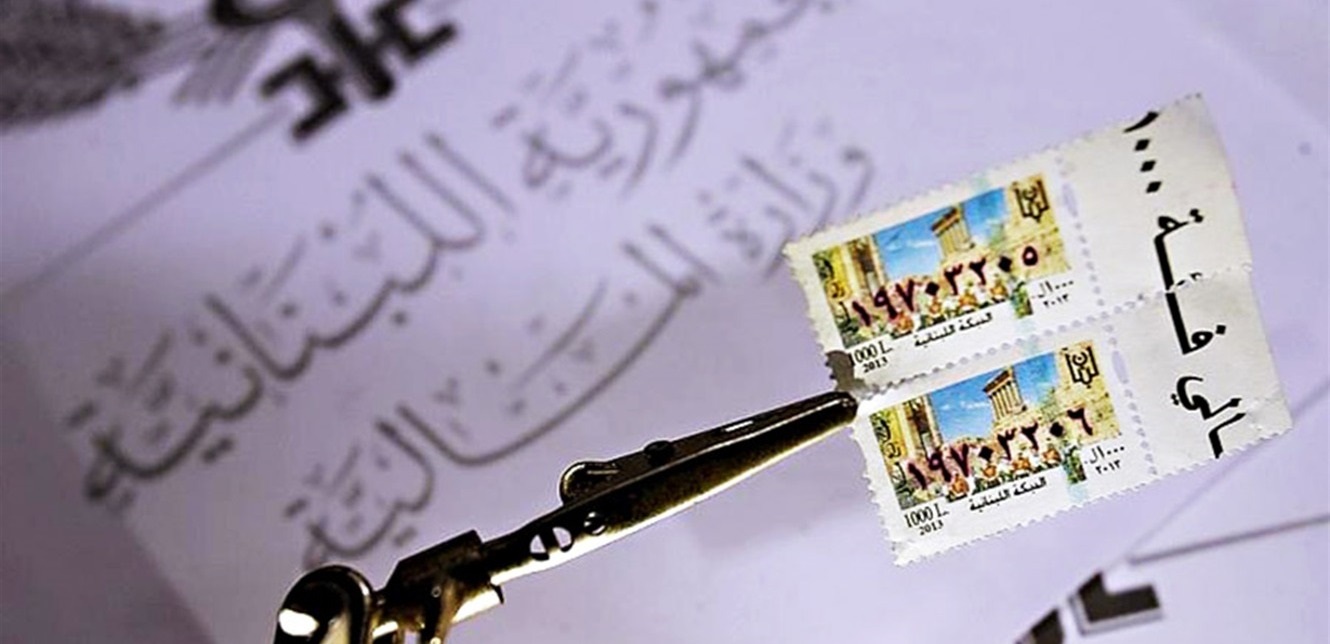 الجمهورية اللبنانية
وزارة المالية
١٩٧٠٣٢٠٥
١٠٠٠ل.
٢٠١٣
الدبكة اللبنانية
1000 L.
2013
١٩٧٠٣٢٠٦
١٠٠٠ل.
٢٠١٣
الدبكة اللبنانية
1000 L.
2013